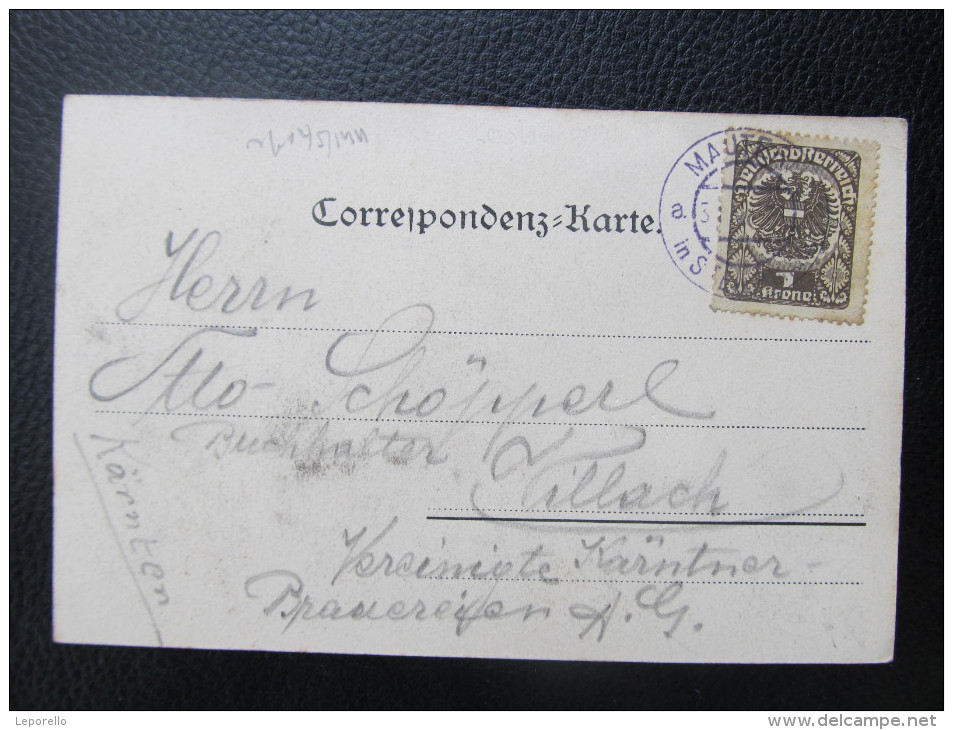 Correspondenz-Karte.
MAUTE
a.
in S
Deutschösterreich
1
Krone
Herrn
Otto Schöpperl
Buchhalter
Villach
Kärnten
Vereinigte Kärntner-
Brauereien A. G.
Leporello
delcampe.net